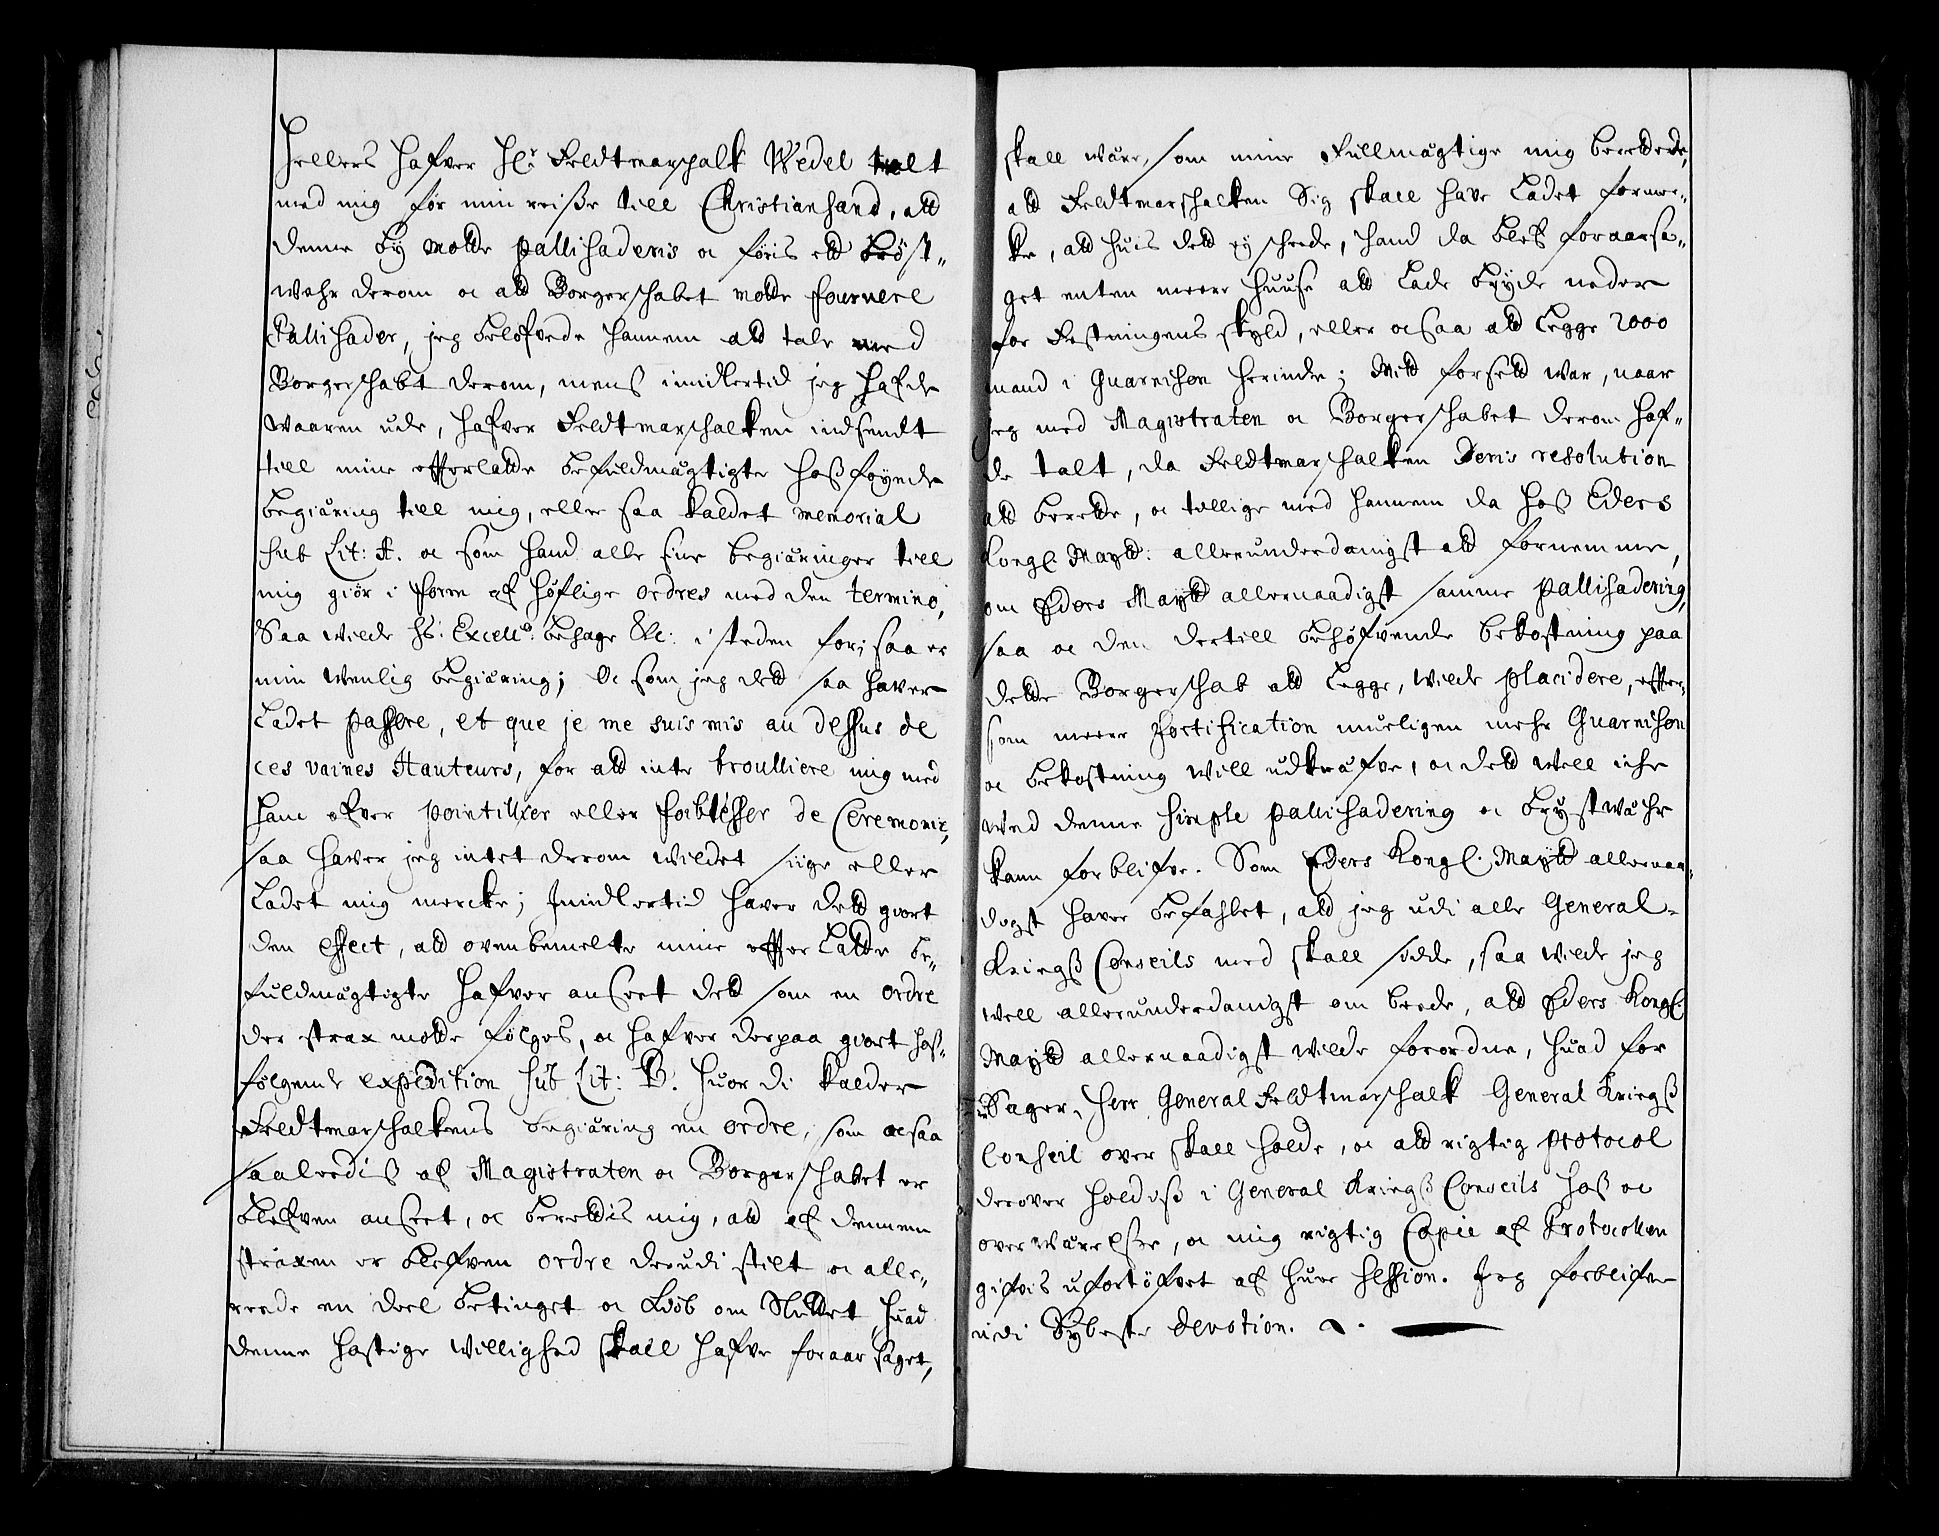 Hellers hafver Hr. Feldtmarschalk Wedel talt
med mig før min reisse till Christiansand, att
denne by motte pallisaderis oc føris ett brøst-
wehr derom oc att Borgerschabet motte fournere
Pallisader, jeg belofvede hannem att tale med
Borgerschabt derom, mens imidlertid jeg hafde
waaren ude, hafver Feldtmarschalken indsendt
till mine efterlatte befuldmægtigte hossføyende
begiæring till mig, eller saa kaldet memorial
sub Lit: A. oc som hand alle sine begiæringer till
mig giør i form af høflige ordres med den termino,
Saa wilde hs: Excell: behage &c: i steden for; saa er
min wenlig begiæring; Oc som jeg dett saa haver
ladet passere, et que je me suis mis au dessus de
ces vaines Hauteurs, for att inte broulliere mig med
ham ofver pointillier eller foiblesser de Ceremonie,
saa haver jeg intet derom wildet siige eller
ladet mig mercke; Imidlertid haver dett giort
den effect, att ovenbemelte mine efterlatte be-
fuldmægtigte hafver anseet dett som en ordre
der strax motte følges, oc hafver derpaa giort hoss-
følgende expedition sub Lit: B. huor di kalder
Feldtmarschalkens begiæring en ordre, som ocsaa
saaledis af Magistraten oc Borgerschabet er
blefven anseet, oc berettis mig, att af dennem
straxen er blefven ordre derudi stilt oc alle-
reede en deel betinget oc kiøb om sluttet, huad
denne hastige willighed skall hafve foraarsaget,
skall være, som mine Fullmægtige mig berettede,
att Feldtmarschalken sig skall have ladet former-
ke, att huis dett ey scheede, hand da blef foraarsa-
get enten meere huuse att lade bryde neder
for Festningens skyld, eller ocsaa att legge 2000
mand i Guarnison herinde; Mitt forsett war, naar
jeg med Magistraten oc Borgerschabet derom haf-
de talt, da Feldtmarschalken deris resolution
att berette, oc tillige med hannem da hoss Eders
Kongl. Maytt: allerunderdanigst att fornemme,
om Eders Maytt allernaadigst samme pallisadering,
saa oc den dertill behøfvende bekostning paa
dette Borgerschab att legge, wilde placidere, efter-
som meere fortification mueligen mehr Guarnison
oc bekostning will udkræfve, oc dett well icke
wed denne simple pallisadering oc brystwæhr
kann forblifve. Som Eders Kongl. Maytt allernaa-
digst haver befahlet, att jeg udi alle General-
Kriegss Conseils med skall sidde, saa wilde jeg
well allerunderdanigst om beede, att Eders Kongl.
Maytt allernaadigst wilde forordne, huad for
Sager, Herr General Feldtmarschalk General Kriegss
Conseil over skall holde, oc att rigtig protocol
derover holdiss i General Kriegss Conseils hoss oc
overwærelsse, oc mig rigtig Copie af Protocollen
gifvis ufortøfvet af huer session. Jeg forblifver
udi Dybeste devotion.